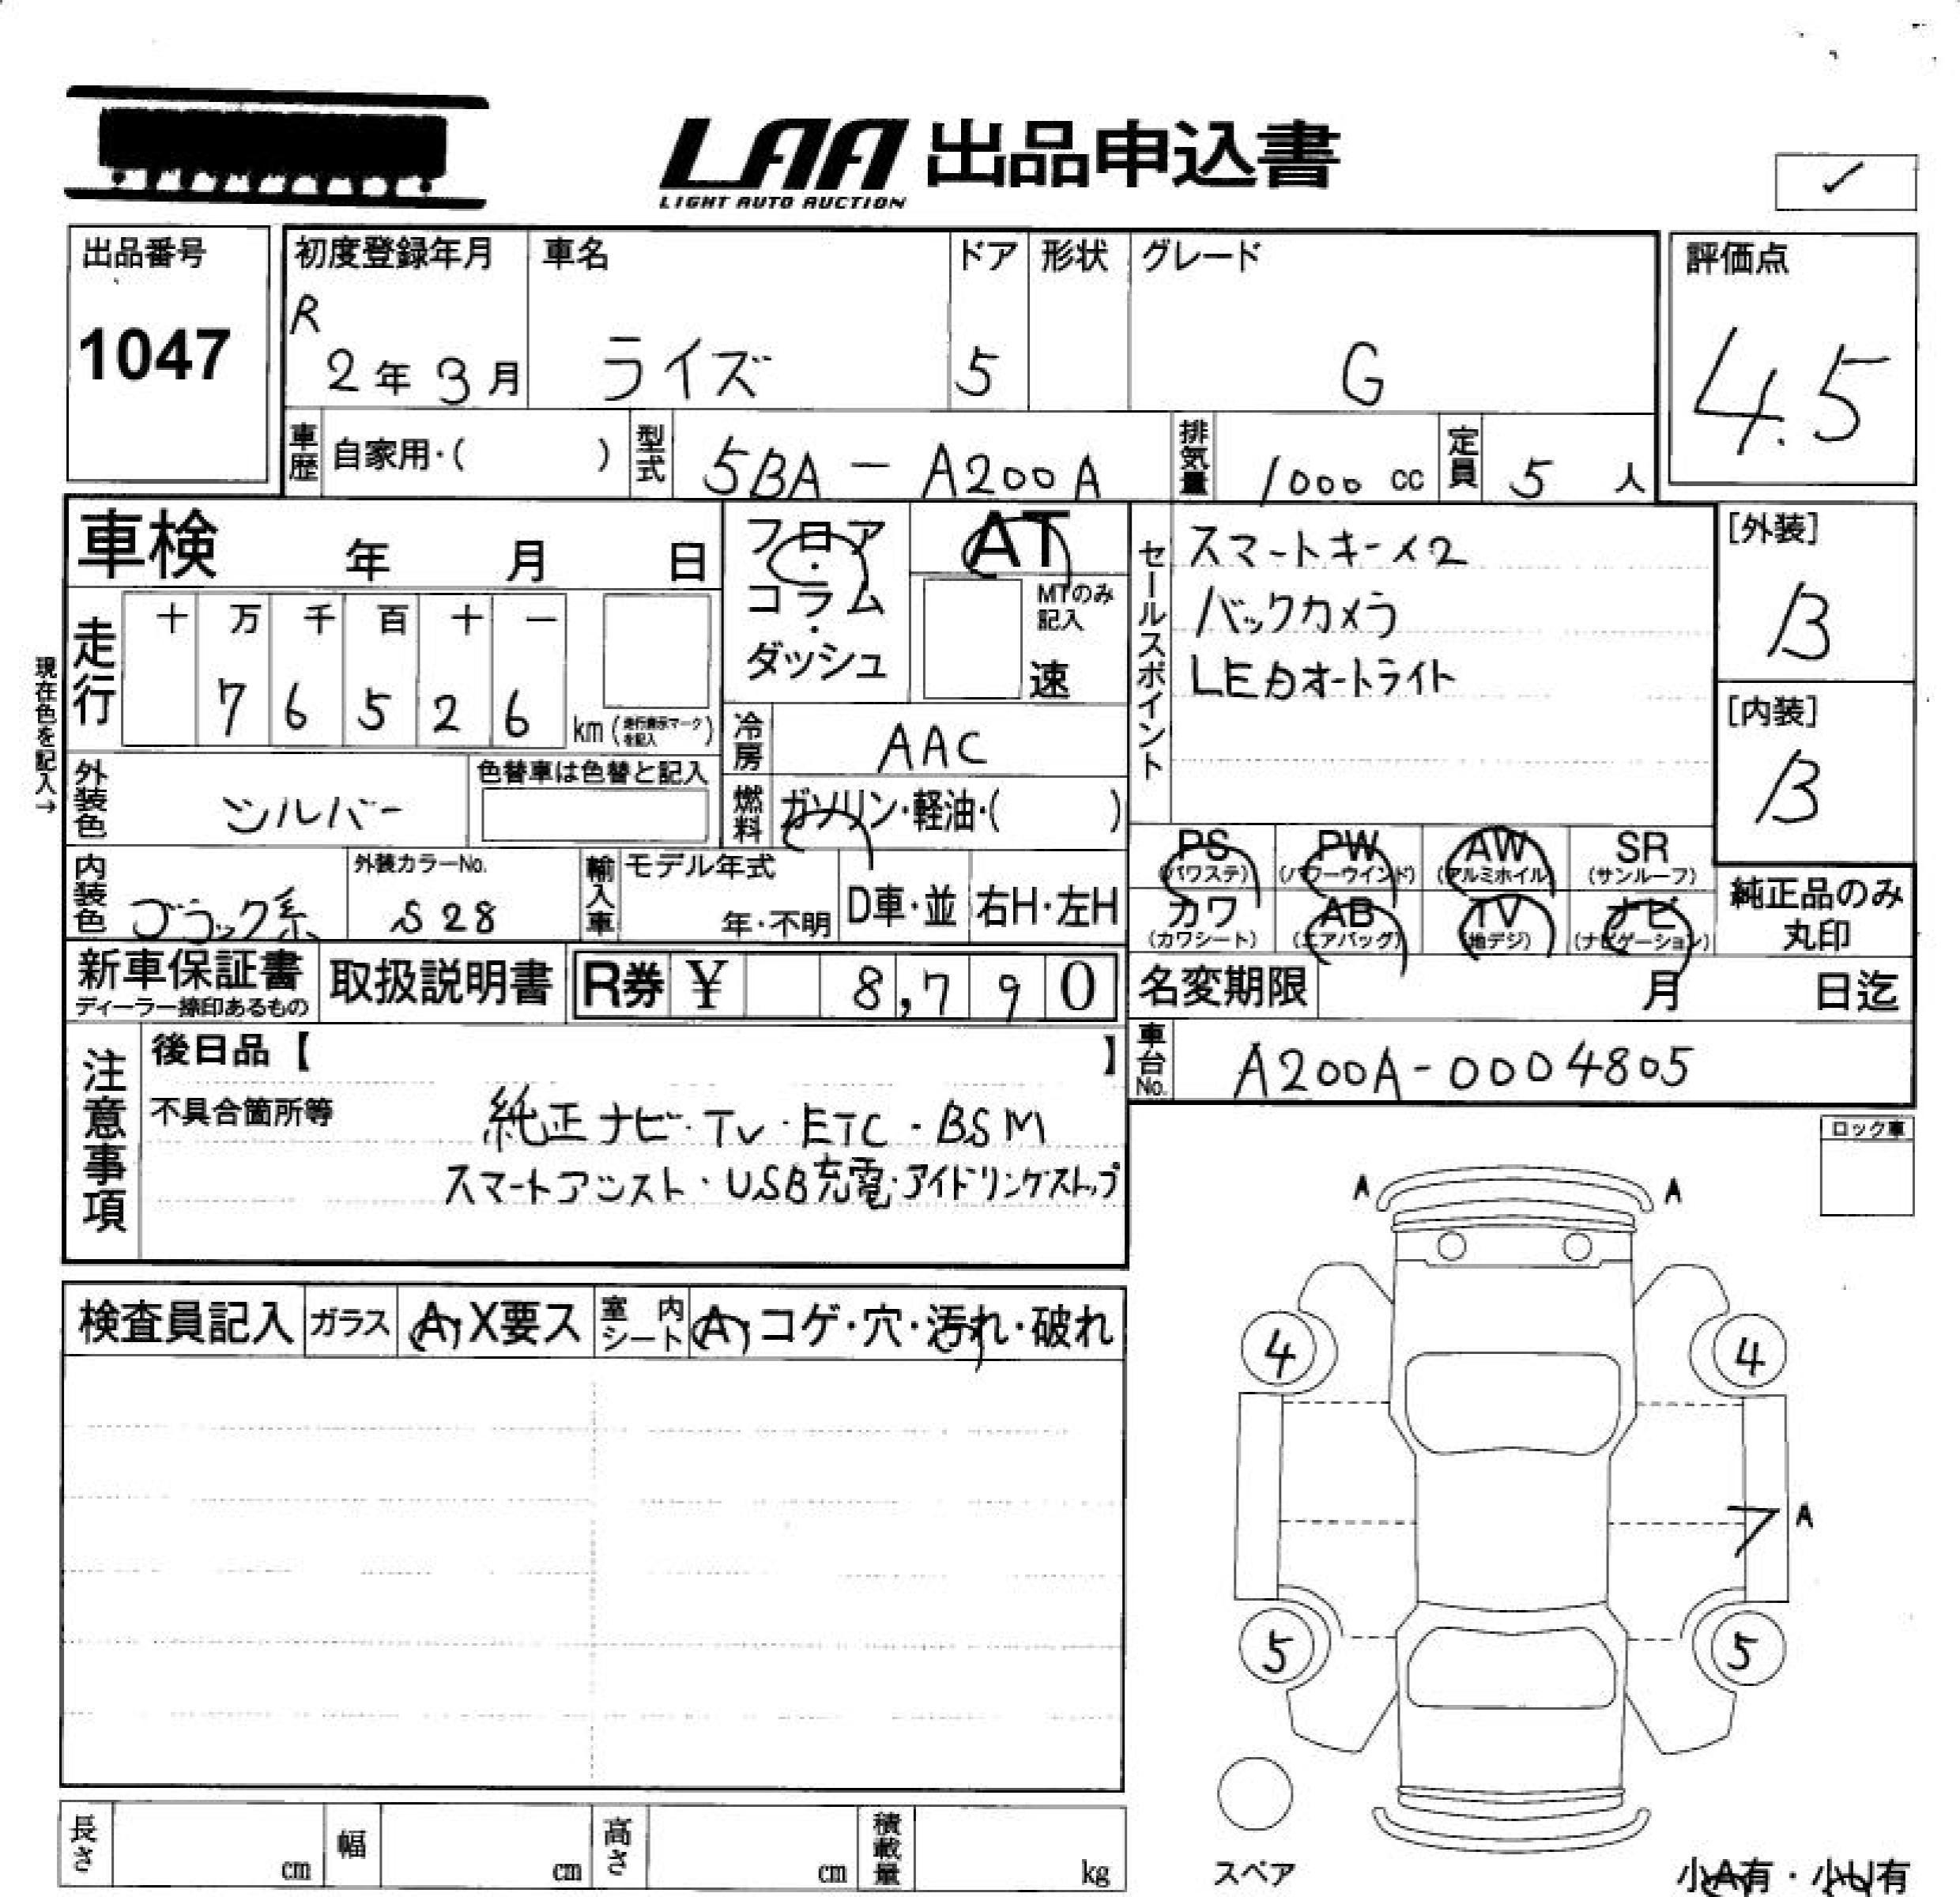 LAA 出品申込書
LIGHT AUTO AUCTION
✓
出品番号
1047
初度登録年月
R
2年3月
車名
ライズ
ドア
5
形状
グレード
G
評価点
4.5
車歴 自家用・( )
型式 5BA - A200A
排気量 1000 cc
定員 5 人
車検 年 月 日
現在色を記入→
走行
十 万 千 百 十 一
7 6 5 2 6
km (走行表示マークを記入)
外装色 シルバー
色替車は色替と記入
内装色 ブラック系
外装カラーNo.
S28
輸入車
モデル年式
年・不明
D車・並
右H・左H
フロア
・
コラム
・
ダッシュ
AT
MTのみ
記入
速
冷房 AAC
燃料 ガソリン・軽油・( )
セールスポイント
スマートキー×2
バックカメラ
LEDオートライト
[外装]
B
[内装]
B
PS
(パワステ)
PW
(パワーウインド)
AW
(アルミホイル)
SR
(サンルーフ)
カワ
(カワシート)
AB
(エアバッグ)
TV
(地デジ)
ナビ
(ナビゲーション)
純正品のみ
丸印
新車保証書
ディーラー捺印あるもの
取扱説明書
R券 ¥ 8,790
名変期限 月 日迄
車台No. A200A-0004805
注意事項
後日品【 】
不具合箇所等
純正ナビ・TV・ETC・BSM
スマートアシスト・USB充電・アイドリングストップ
ロック車
検査員記入
ガラス
A・X要ス
室内シート
A・コゲ・穴・汚れ・破れ
A A
4 4
ア A
5 5
スペア
小A有・小U有
長さ cm
幅 cm
高さ cm
積載量 kg